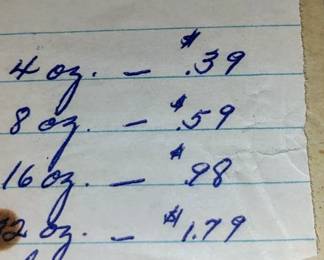 4 oz. — $.39
8 oz. — $.59
16 oz. — $.98
32 oz. — $1.79